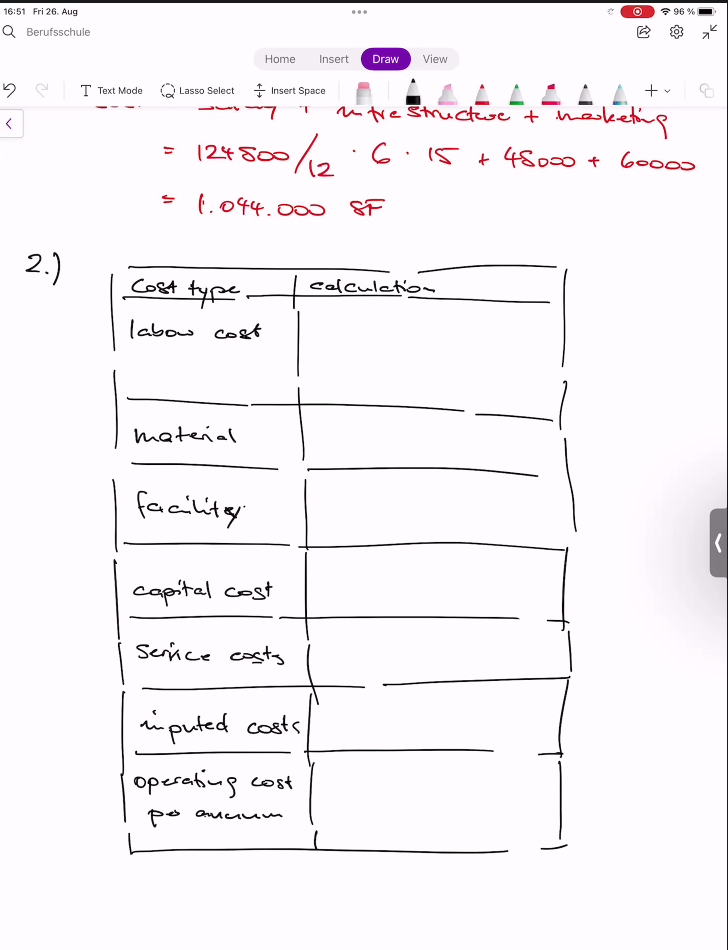 16:51 Fri 26. Aug
96 %
Berufsschule
Home Insert Draw View
T Text Mode Lasso Select Insert Space
+ infrastructure + marketing
= 124800/12 · 6 · 15 + 48000 + 60000
= 1.044.000 SF
2.)
Cost type calculation
labour cost
material
facility
capital cost
Service costs
inputed costs
operating cost
per annum